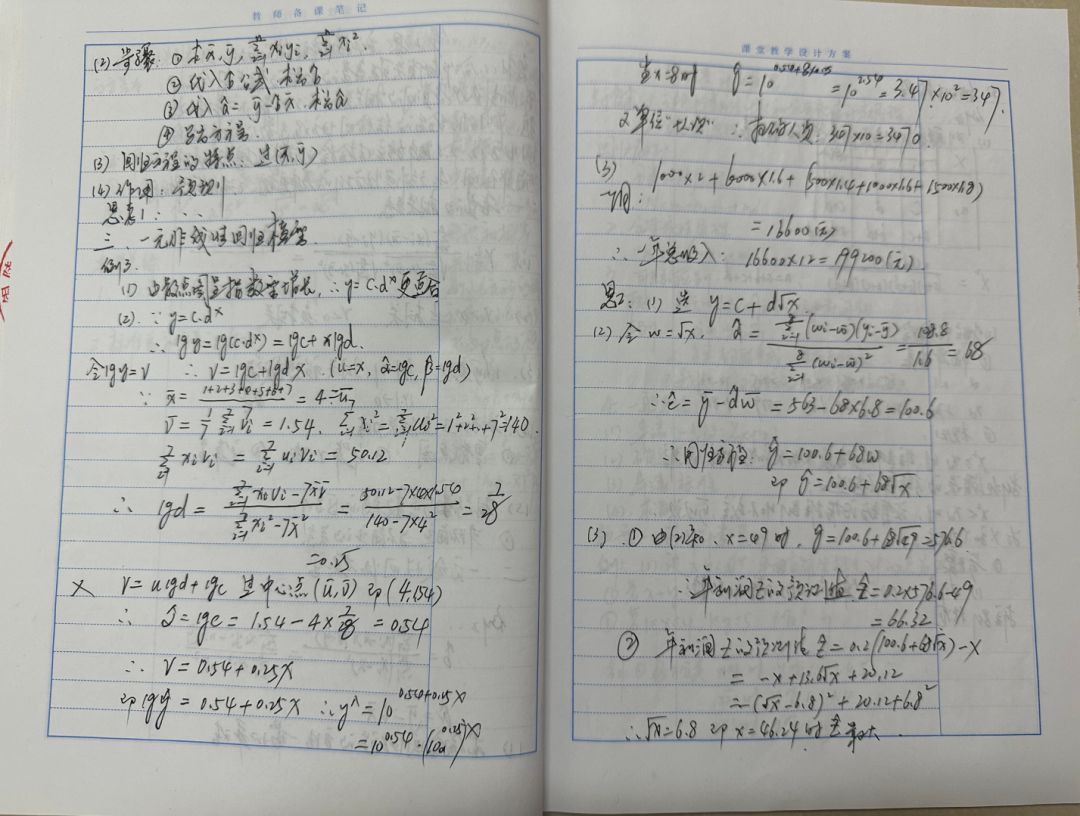 教师备课笔记
(2) 步骤: ① 求x̄, ȳ, Σxiyi, Σxi².
② 代入b̂公式 求b̂
③ 代入 â = ȳ - b̂x̄. 求â
④ 写出方程.
(3) 回归方程的特点: 过(x̄,ȳ)
(4) 作用: 预测
思考1: . . .
三. 一元非线性回归模型
例3.
(1) 由散点图呈指数型增长, ∴ y=c·dˣ更适合
(2). ∵ y=c·dˣ
∴ lgy=lg(c·dˣ)=lgc+xlgd.
令lgy=v ∴ v=lgc+lgd x (u=x, α̂=lgc, β̂=lgd)
∵ x̄ = (1+2+3+4+5+6+7)/7 = 4=ū
v̄ = 1/7 Σvi = 1.54. Σxi²=Σui²=1²+2²+…+7²=140.
Σxivi = Σuivi = 50.12
∴ lgd = (Σxivi-7x̄v̄)/(Σxi²-7x̄²) = (50.12-7×4×1.54)/(140-7×4²) = 7/28
=0.25
又 v=ulgd+lgc 过中心点(ū,v̄) 即(4,1.54)
∴ α̂=lgc=1.54-4×7/28=0.54
∴ v=0.54+0.25x
即 lgŷ=0.54+0.25x ∴ y^=10^(0.54+0.25x)
=10^0.54·(10^0.25)^x
课堂教学设计方案
当x=8时 ŷ=10^(0.54+8×0.25)=10^2.54=3.47×10²=347.
又单位"十人次" ∴ 人次: 347×10=3470
(3) 一个月: 1000×2+6000×1.6+(500×1.4+1000×1.6+1500×1.8)
=16600(元)
∴ 一年总收入: 16600×12=199200(元).
思2: (1) 选 y=c+d√x.
(2) 令 w=√x. d̂ = Σ(wi-w̄)(yi-ȳ)/Σ(wi-w̄)² = 108.8/1.6 = 68
∴ ĉ=ȳ-d̂w̄=563-68×6.8=100.6
∴ 回归方程: ŷ=100.6+68w
即 ŷ=100.6+68√x
(3) ① 由(2)知. x=49时, ŷ=100.6+68√49=576.6
∴ 年利润z的预测值 ẑ=0.2×576.6-49
=66.32
② 年利润z的预测值 ẑ=0.2(100.6+68√x)-x
= -x+13.6√x+20.12
= -(√x-6.8)²+20.12+6.8²
∴ √x=6.8 即 x=46.24时 ẑ最大.